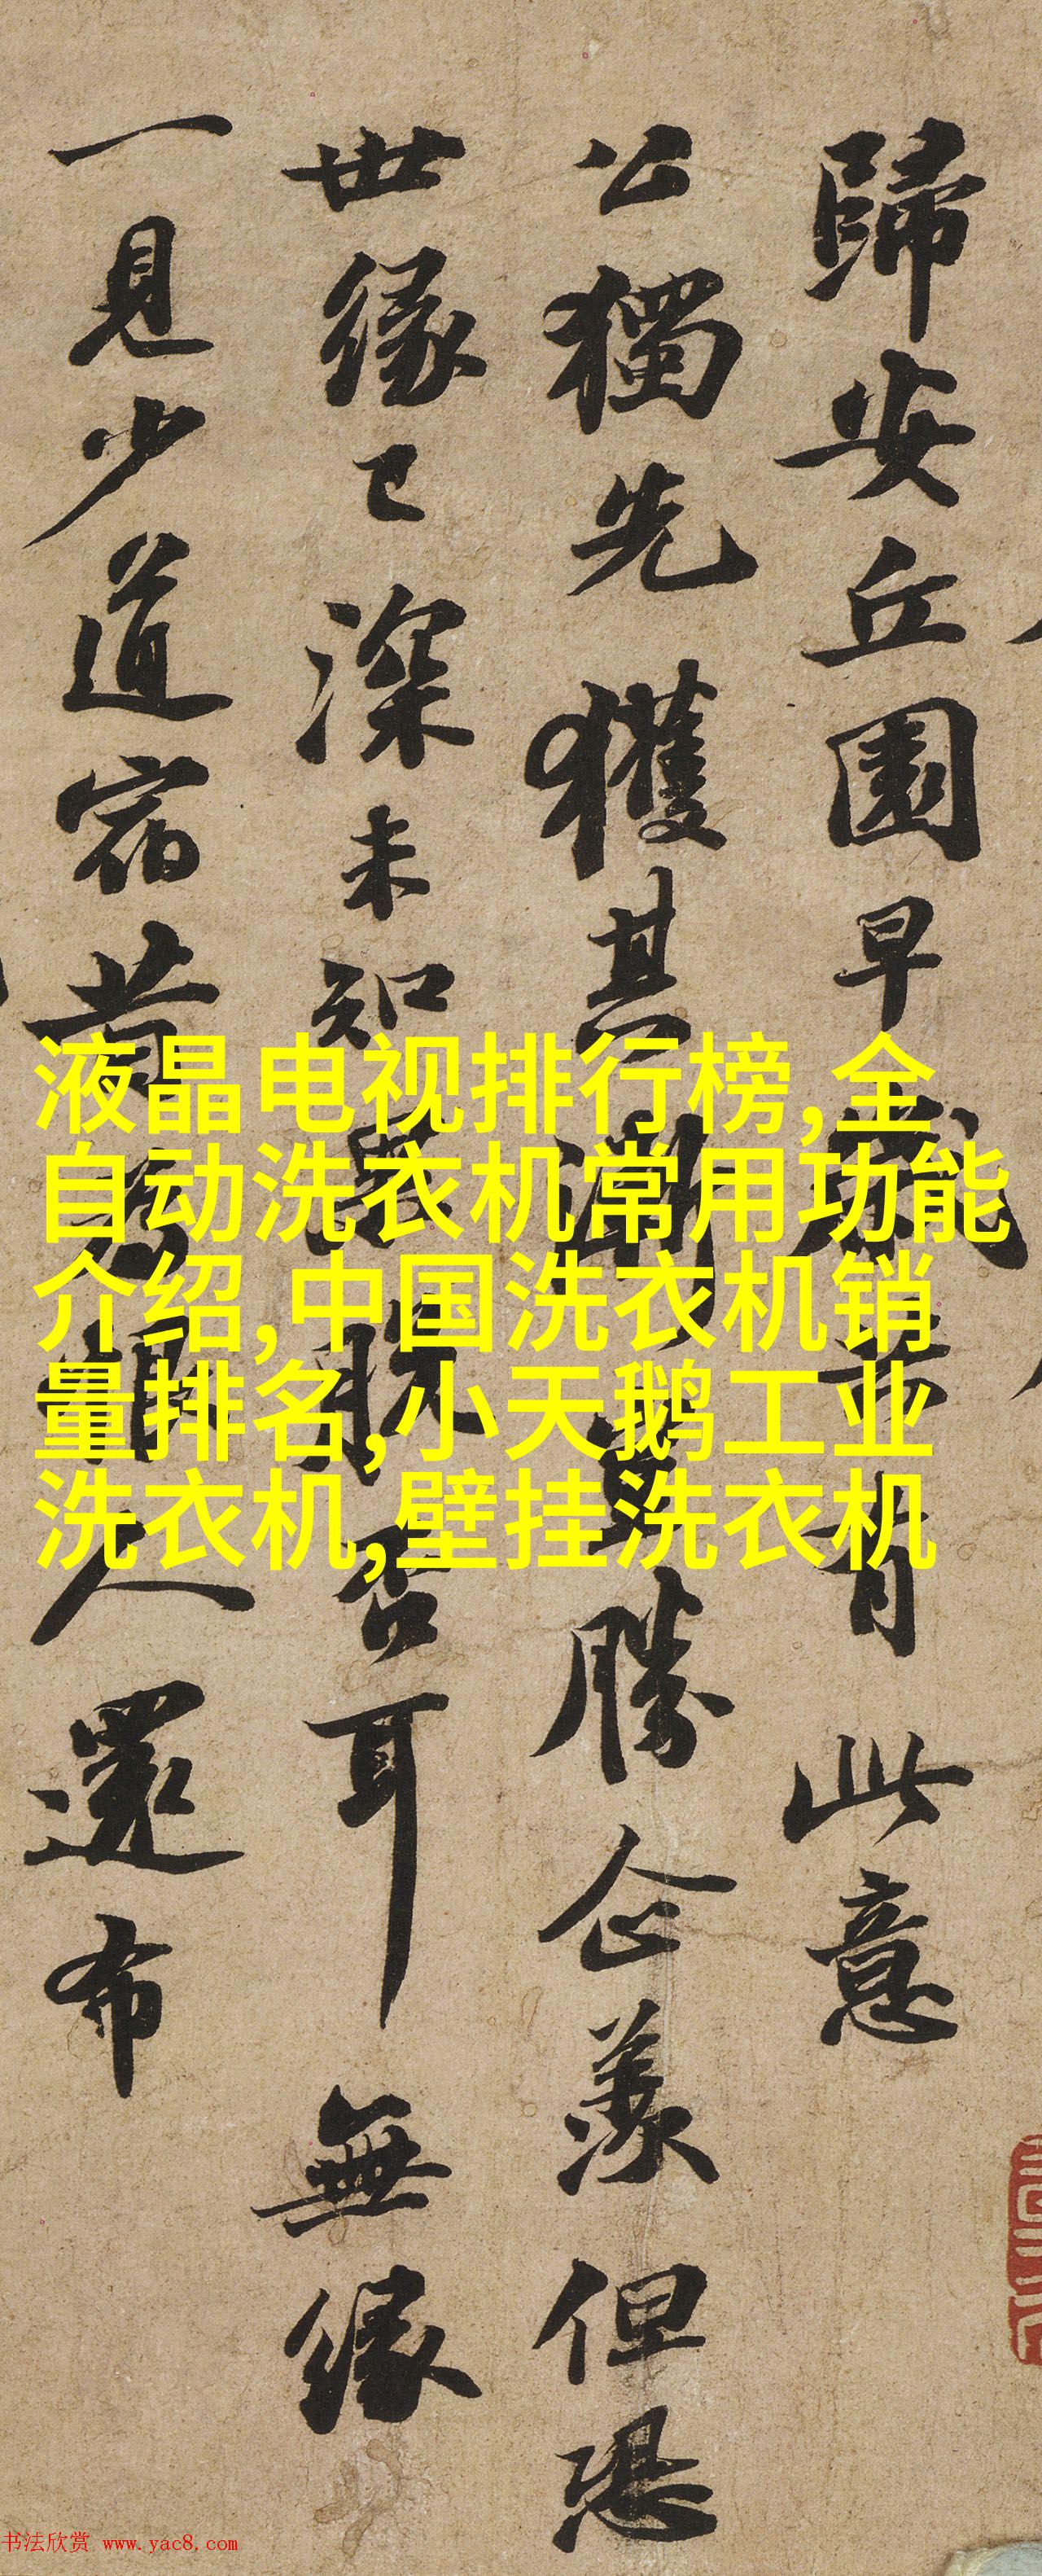 歸安丘園早歲共有此意
公獨先獲其漸豈勝企羨但恐
世緣已深未知果脫否耳無緣
一見少道宿昔為人還布
液晶电视排行榜,全
自动洗衣机常用功能
介绍,中国洗衣机销
量排名,小天鹅工业
洗衣机,壁挂洗衣机
书法欣赏 www.yac8.com